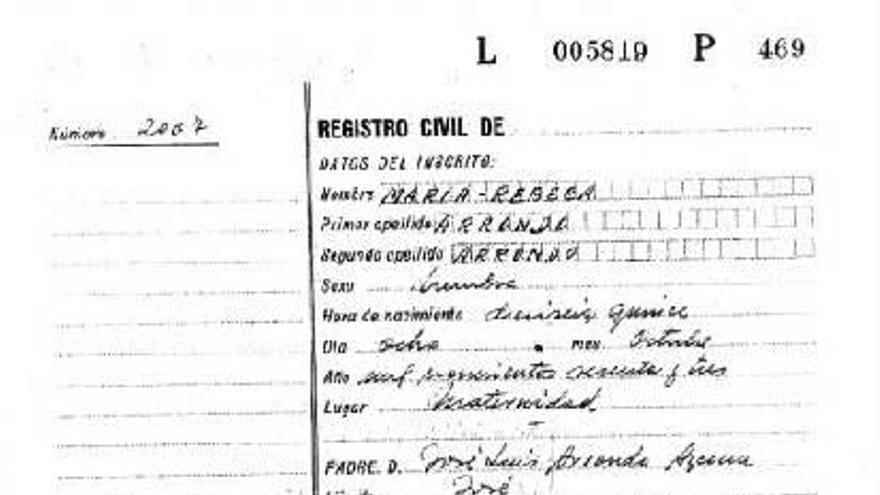 L 005819 P 469
Número 2007
REGISTRO CIVIL DE
DATOS DEL INSCRITO:
Nombre MARIA-REBECA
Primer apellido ARRONDO
Segundo apellido ARRONDO
Sexo hembra
Hora de nacimiento dieciseis quince
Día ocho mes Octubre
Año mil novecientos sesenta y tres
Lugar Maternidad
PADRE. D. José Luis Arrondo
José